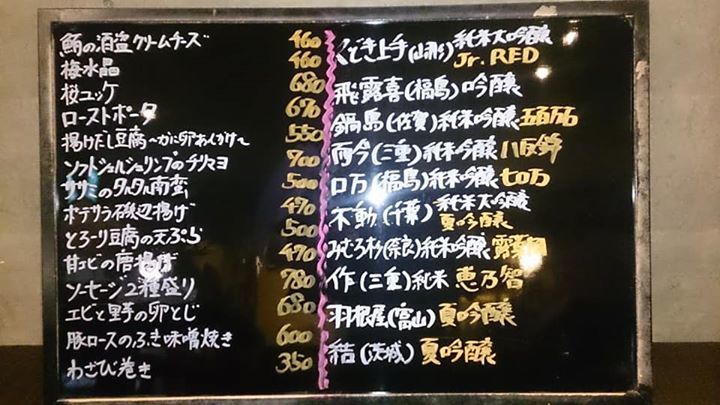 鮪の酒盗クリームチーズ 460
梅水晶 460
桜ユッケ 680
ローストポーク 670
揚げだし豆腐～かに卵あんかけ～ 550
ソフトシェルシュリンプのチリマヨ 700
ササミのタルタル南蛮 500
ポテサラ磯辺揚げ 470
とろーり豆腐の天ぷら 500
甘エビの唐揚げ 470
ソーセージ2種盛り 780
エビと野手の卵とじ 680
豚ロースのふき味噌焼き 600
わさび巻き 350
くどき上手(山形)純米大吟醸
Jr. RED
飛露喜(福島)吟醸
鍋島(佐賀)純米吟醸 五百万石
而今(三重)純米吟醸 八反錦
ロ万(福島)純米吟醸 七ロ万
不動(千葉)純米大吟醸
夏吟醸
みむろ杉(奈良)純米吟醸
作(三重)純米 恵乃智
羽根屋(富山)夏吟醸
結(茨城)夏吟醸